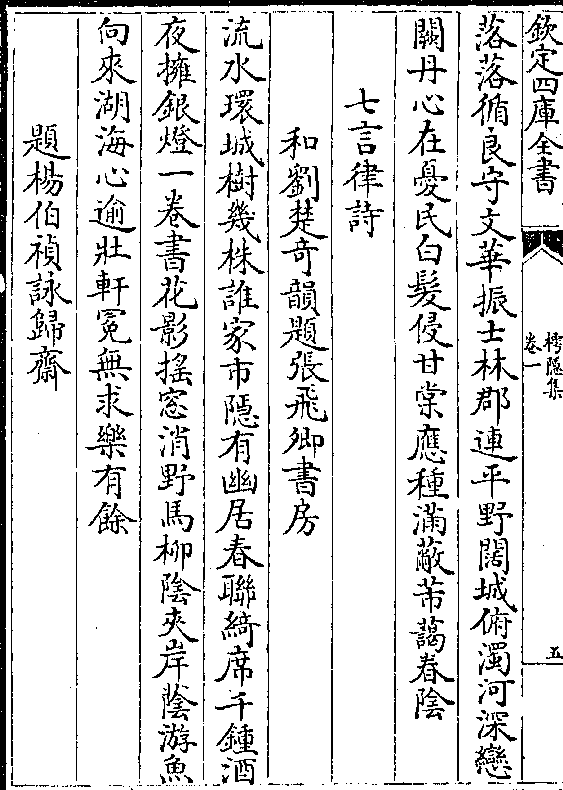 欽定四庫全書
樗隱集
卷一
五
落落循良守文華振士林郡連平野闊城俯濁河深戀
闕丹心在憂民白髮侵甘棠應種滿蔽芾藹春陰
七言律詩
和劉楚奇韻題張飛卿書房
流水環城樹幾株誰家市隱有幽居春聯綺席千鍾酒
夜擁銀燈一卷書花影搖窓消野馬柳陰夾岸蔭游魚
向來湖海心逾壯軒冕無求樂有餘
題楊伯禎詠歸齋